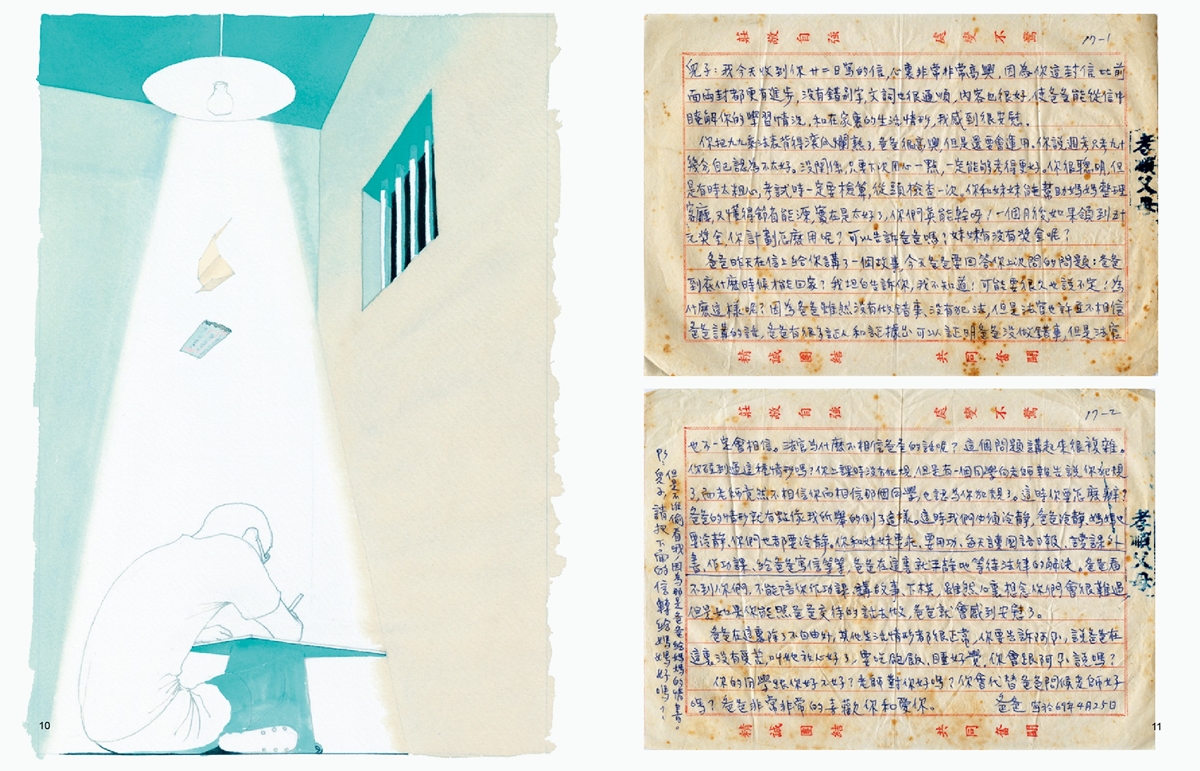 莊敬自強 處變不驚 17-1
兒子：我今天收到你廿二日寫的信，心裏非常非常高興，因為你這封信比前
面兩封都更有進步，沒有錯別字，文詞也很通順，內容也很好，使爸爸能從信中
瞭解你的學習情況，和在家裏的生活情形，我感到很安慰．
你把九九乘法表背得滾瓜爛熟，爸爸很高興，但是還要會運用。你說週考只考八十
幾分自己認為不太好。沒關係，只要下次用心一點，一定能夠考得更好。你很聰明，但
是有時太粗心，考試時一定要檢算，從頭檢查一次。你和妹妹能幫助媽媽整理
客廳，又懂得節省能源，實在是太好了，你們真能幹呀！一個月後，如果領到五十
元獎金，你計劃怎麼用呢？可以告訴爸爸嗎？妹妹有沒有獎金呢？
爸爸昨天在信上給你講了一個故事，今天爸爸要回答你上次問的問題：爸爸
到底什麼時候才能回家？我坦白告訴你，我不知道！可能要很久也說不定！為
什麼這樣呢？因為爸爸雖然沒有做錯事，沒有犯法，但是法官也許並不相信
爸爸講的話，爸爸有很多証人和証據，可以証明爸爸沒做錯事，但是法官
精誠團結 共同奮鬪
孝順父母
莊敬自強 處變不驚 17-2
也不一定會相信。法官為什麼不相信爸爸的話呢？這個問題講起來很複雜。
你碰到過這種情形嗎？你上課時沒有犯規，但是有一個同學向老師報告說你犯規
了，而老師竟然不相信你而相信那個同學，也認為你犯規了。這時你要怎麼辦？
爸爸的情形就有點像我所舉的例子這樣。這時我們必須冷靜，爸爸冷靜，媽媽也
要冷靜，你們也都要冷靜。你和妹妹要乖，要用功，每天讀國語日報、讀課外
書、作功課、給爸爸寫信等等，爸爸在這裏就平靜地等待法律的解決。爸爸看
不到你們，不能陪你作功課、講故事、下棋，雖然心裏想念你們會很難過，
但是如果你能照爸爸交待的話去做，爸爸就會感到安慰了。
爸爸在這裏除了不自由外，其他生活情形都很正常，你要告訴阿媽，說爸爸在
這裏沒有憂慮，叫她放心好了，要吃飽飯、睡好覺，你會跟阿媽說嗎？
你的同學跟你好不好？老師對你好嗎？你會代替爸爸問候老師好
嗎？爸爸非常非常的喜歡你和愛你。 爸爸 寫於69年4月25日
精誠團結 共同奮鬪
孝順父母
PS 兒子，請把下面的信轉給媽媽好嗎？
但是不准偷看哦，因為那是爸爸給媽媽的情書。
10
11